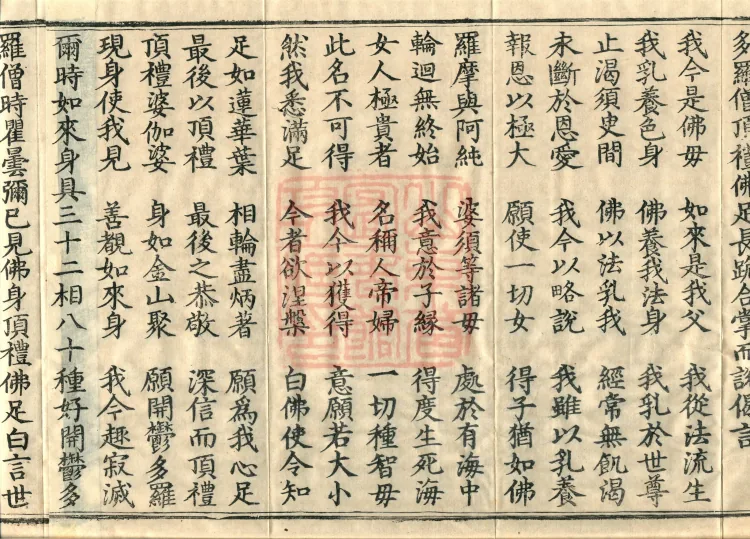 多羅僧頂禮佛足長跪合掌而說偈言
我今是佛母　如來是我父　我從法流生
我乳養色身　佛養我法身　我乳於世尊
止渴須臾間　佛以法乳我　經常無飢渴
永斷於恩愛　我今以略說　我雖以乳養
報恩以極大　願使一切女　得子猶如佛
羅摩與阿純　婆須等諸母　處於有海中
輪迴無終始　我意於子緣　得度生死海
女人極貴者　名稱人帝婦　一切種智母
此名不可得　我今以獲得　意願若大小
然我悉滿足　今者欲涅槃　白佛使令知
足如蓮華葉　相輪盡炳著　願為我心足
最後以頂禮　最後之恭敬　深信而頂禮
頂禮婆伽婆　身如金山聚　願開鬱多羅
現身使我見　善觀如來身　我今趣寂滅
爾時如來身具三十二相八十種好開鬱多
羅僧時瞿曇彌已見佛身頂禮佛足白言世